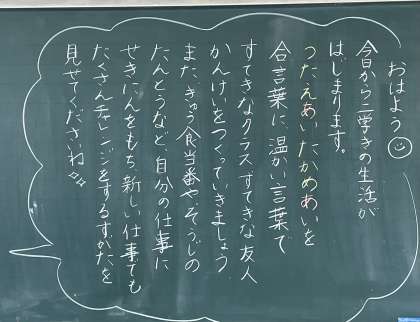 おはよう
今日から二学きの生活が
はじまります。
つたえあい たかめあいを
合言葉に、温かい言葉で
すてきなクラス、すてきな友人
かんけいをつくっていきましょう。
また、きゅう食当番や、そうじの
たんとうなど、自分の仕事に
せきにんをもち、新しい仕事でも
たくさんチャレンジをするすがたを
見せてくださいね